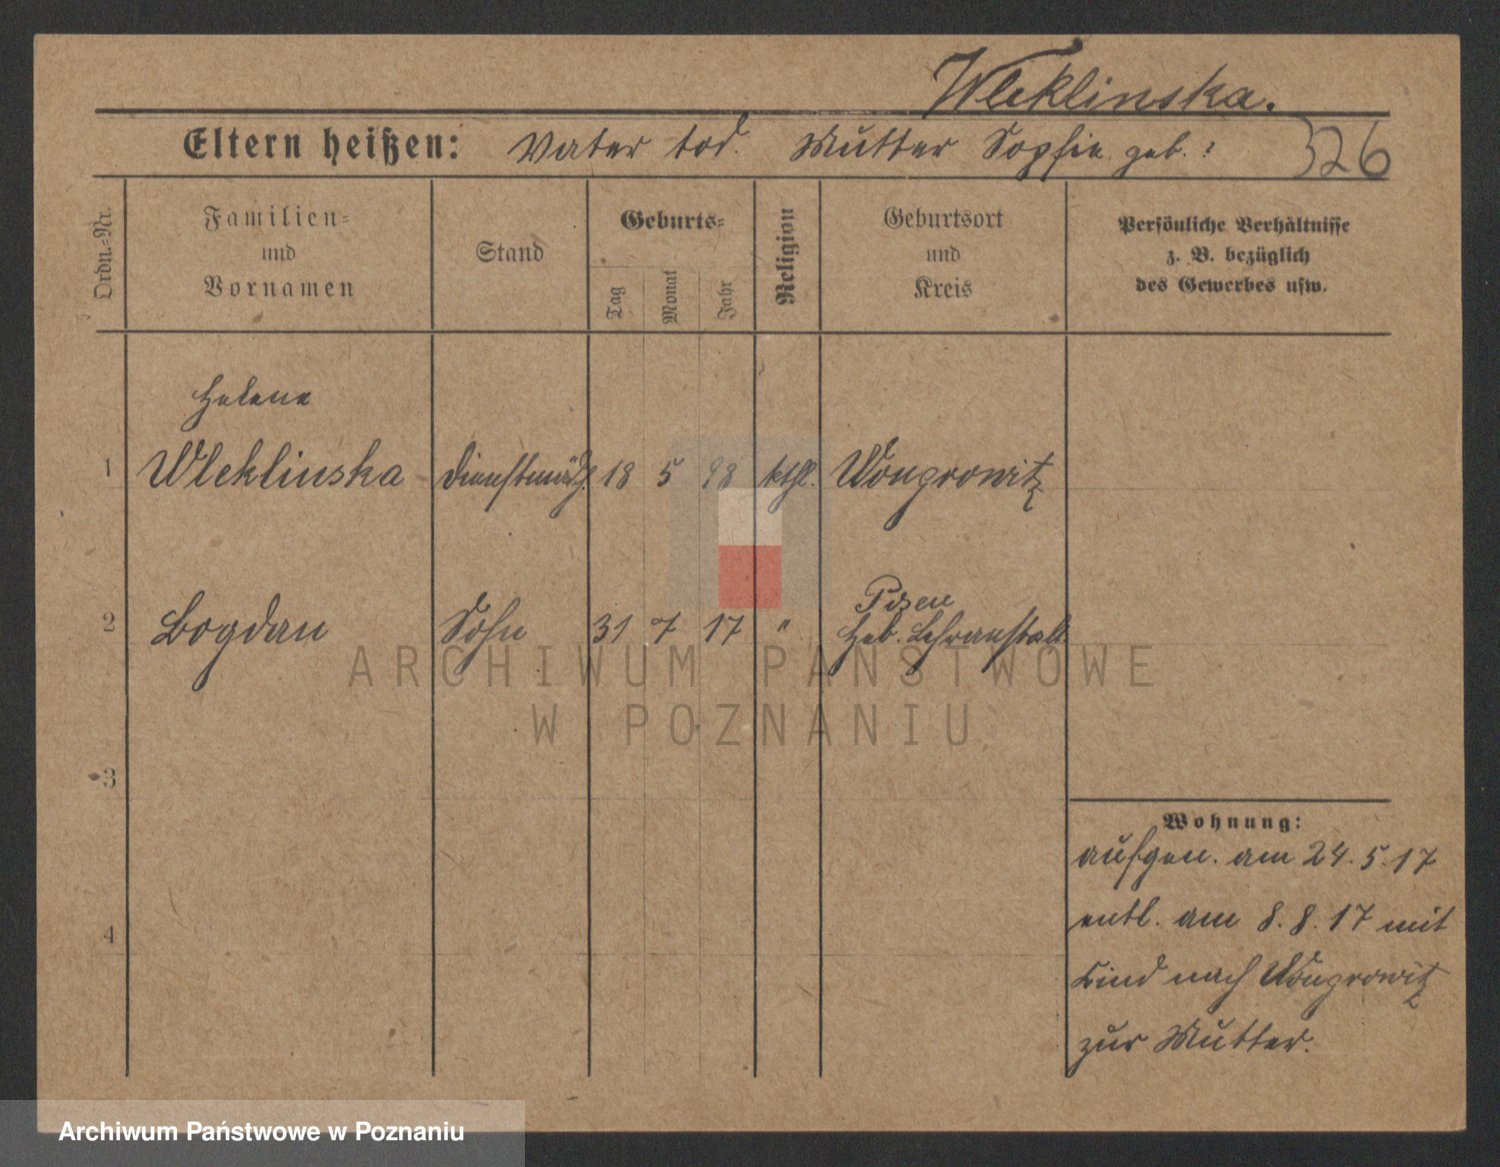 Wleklinska.
Eltern heißen: Vater tod. Mutter Sophie geb. ?
326
Ordn.-Nr.
Familien-
und
Vornamen
Stand
Geburts-
Tag
Monat
Jahr
Religion
Geburtsort
und
Kreis
Persönliche Verhältnisse
z. B. bezüglich
des Gewerbes usw.
Helene
1 Wleklinska Dienstmädch. 18 5 98 kthl. Wongrowitz
Posen
2 Bogdan Sohn 31 7 17 " Heb. Lehranstalt
3
4
Wohnung:
aufgen. am 24.5.17
entl. am 8.8.17 mit
Kind nach Wongrowitz
zur Mutter.
ARCHIWUM PAŃSTWOWE
W POZNANIU
Archiwum Państwowe w Poznaniu